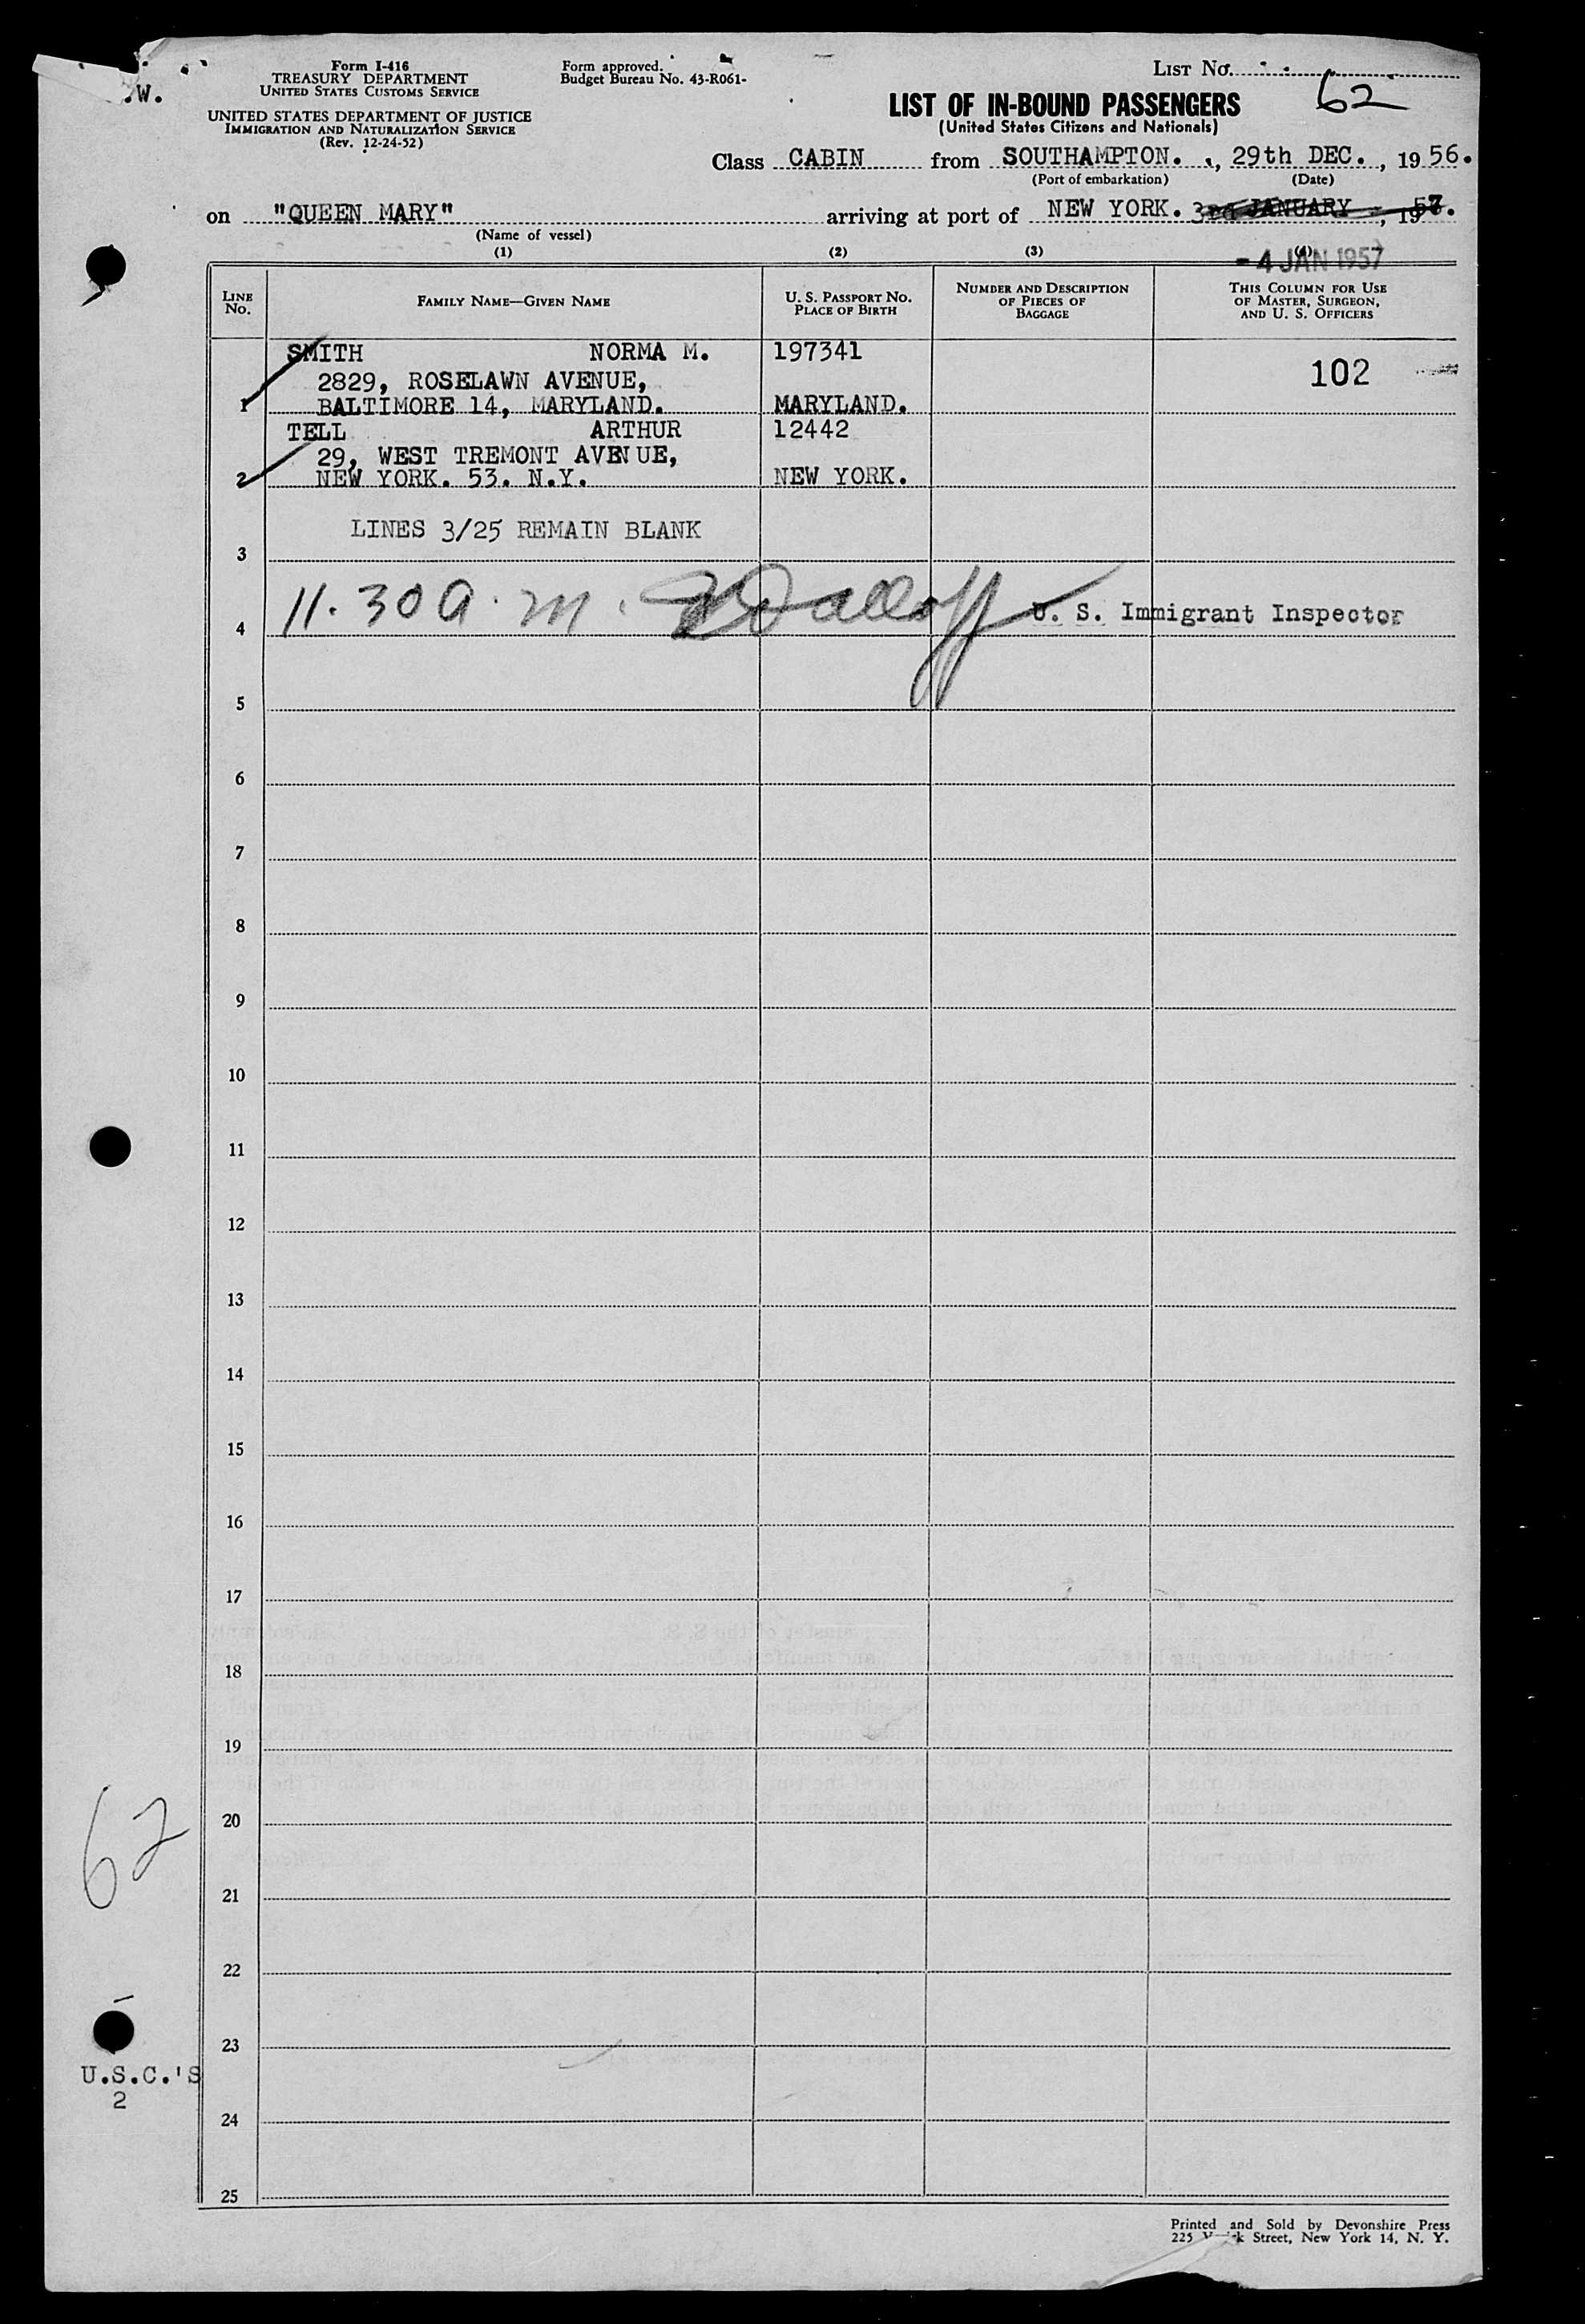 .W.
Form I-416
TREASURY DEPARTMENT
UNITED STATES CUSTOMS SERVICE
UNITED STATES DEPARTMENT OF JUSTICE
IMMIGRATION AND NATURALIZATION SERVICE
(Rev. 12-24-52)
Form approved.
Budget Bureau No. 43-R061-
LIST NO.
62
LIST OF IN-BOUND PASSENGERS
(United States Citizens and Nationals)
Class CABIN from SOUTHAMPTON. , 29th DEC. , 19 56.
(Port of embarkation) (Date)
on "QUEEN MARY" arriving at port of NEW YORK. 3rd JANUARY , 1957.
(Name of vessel)
(1) (2) (3) (4)
- 4 JAN 1957
LINE No. FAMILY NAME—GIVEN NAME U. S. PASSPORT NO. PLACE OF BIRTH NUMBER AND DESCRIPTION OF PIECES OF BAGGAGE THIS COLUMN FOR USE OF MASTER, SURGEON, AND U. S. OFFICERS
SMITH NORMA M. 197341
102
2829, ROSELAWN AVENUE,
1 BALTIMORE 14, MARYLAND. MARYLAND.
TELL ARTHUR 12442
29, WEST TREMONT AVENUE,
2 NEW YORK. 53. N.Y. NEW YORK.
LINES 3/25 REMAIN BLANK
3
11.30 a.m. U. S. Immigrant Inspector
4
5
6
7
8
9
10
11
12
13
14
15
16
17
18
19
20
62
21
22
23
U.S.C.'S
2
24
25
Printed and Sold by Devonshire Press
225 Street, New York 14, N. Y.